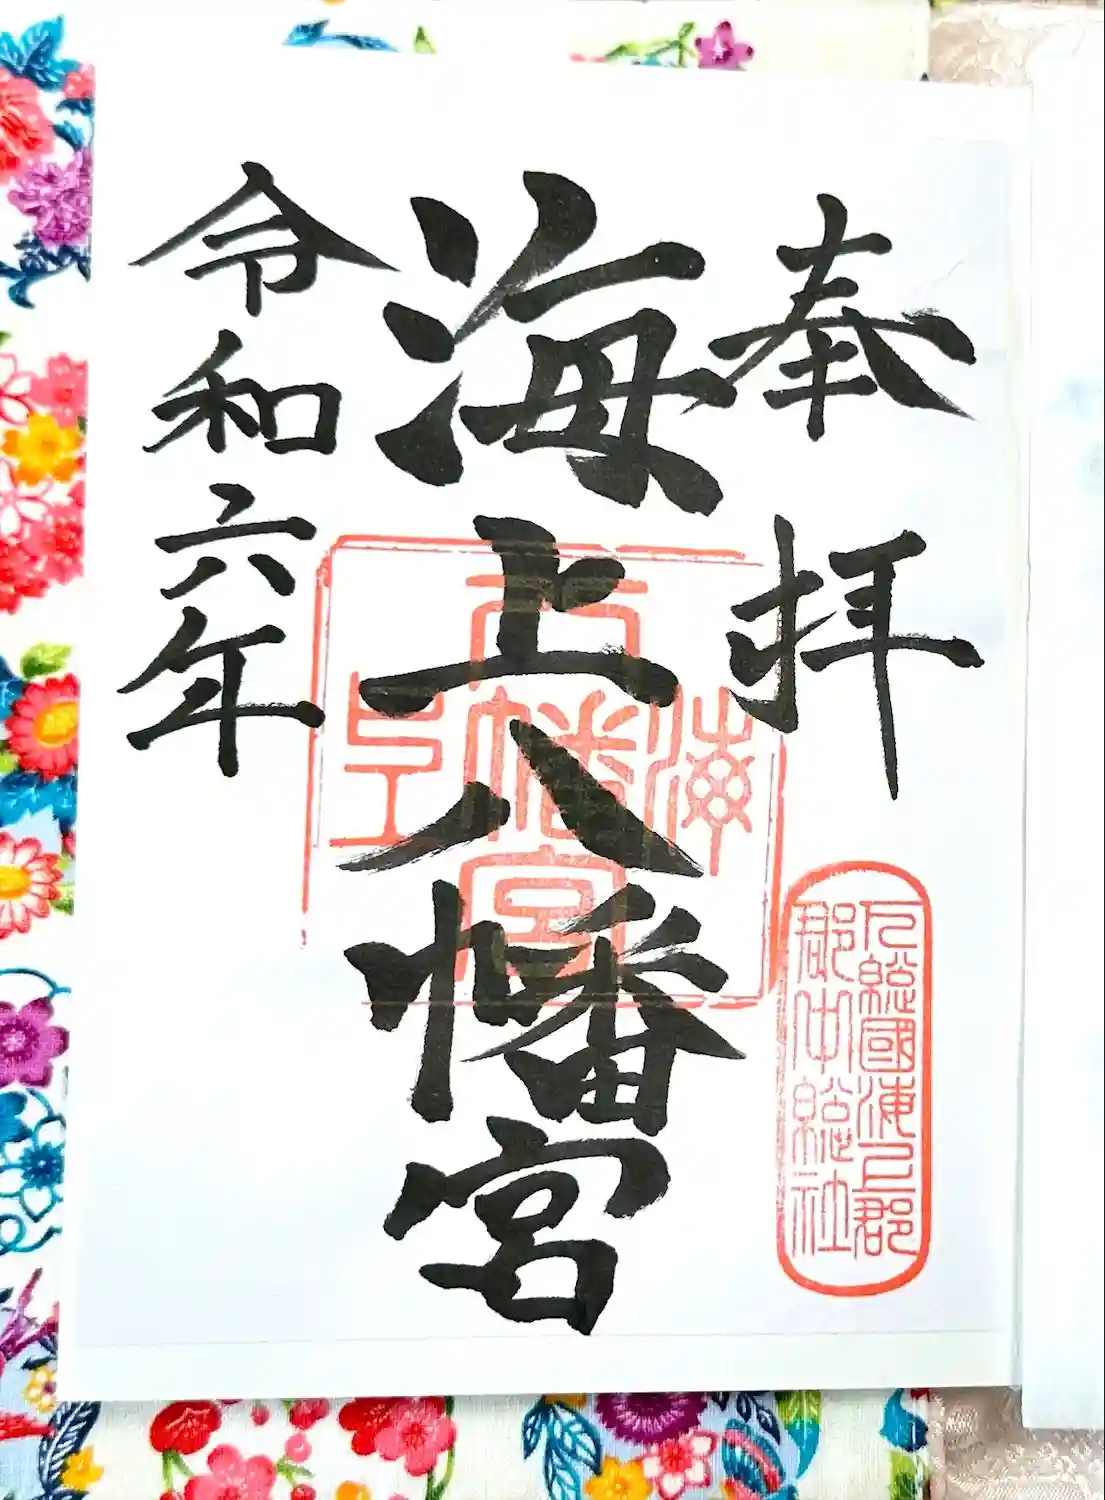 奉拝
海上八幡宮
令和六年
海上
八幡宮
印
下総國海上郡
郡中総社